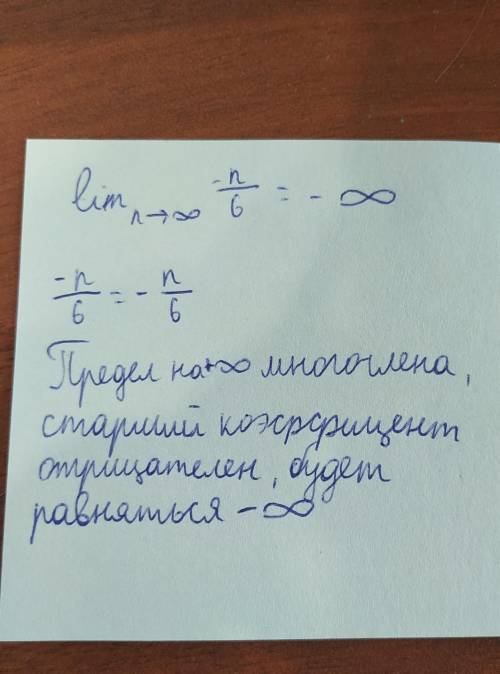 lim n→∞ -n/6 = - ∞
-n/6 = - n/6
Предел на +∞ многочлена,
старший коэффициент
отрицателен, будет
равняться -∞